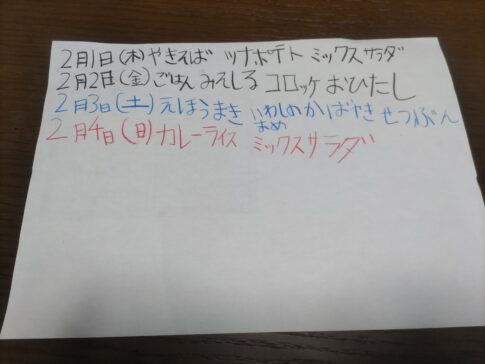 2月1日(木)やきそば ツナポテト ミックスサラダ
2月2日(金)ごはん みそしる コロッケ おひたし
2月3日(土)えほうまき いわしのかばやき せつぶん
まめ
2月4日(日)カレーライス ミックスサラダ